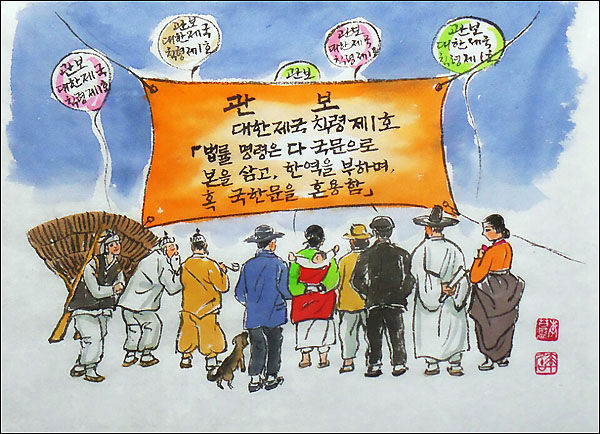 관보
대한제국
칙령제1호
관보
대한제국
칙령제1호
관보
관보
대한제국
칙령제1호
관보
대한제국
칙령제1호
관 보
대한제국 칙령 제1호
「법률 명령은 다 국문으로
본을 삼고, 한역을 부하며,
혹 국한문을 혼용함」